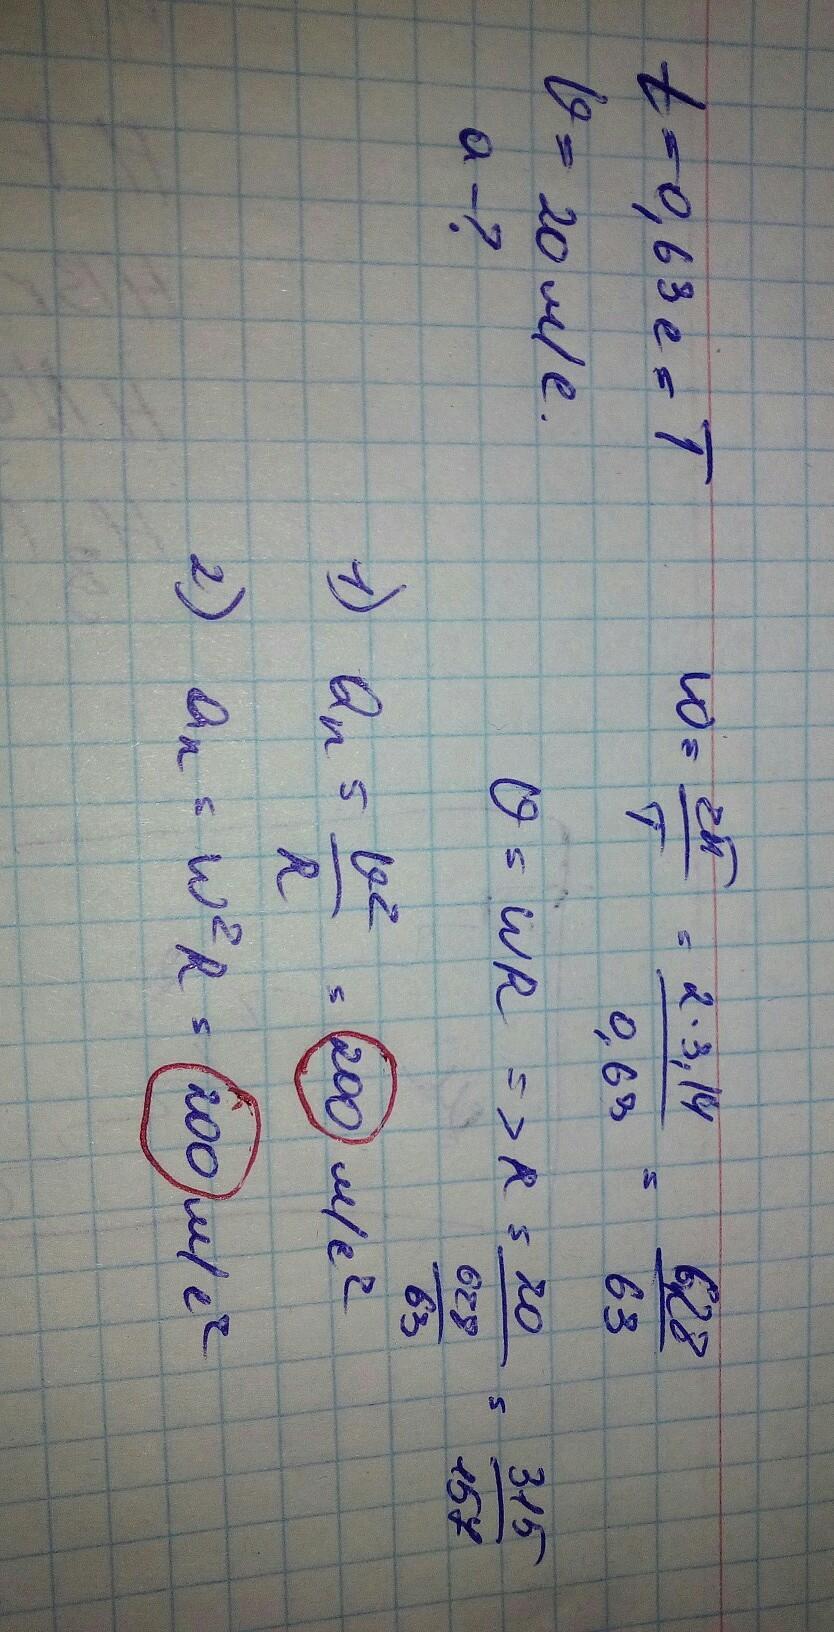 t = 0,63 с = T
υ = 20 м/с.
a - ?
ω = 2π/T = 2·3,14/0,63 = 628/63
υ = ωR => R = 20/(628/63) = 315/157
1) aₙ = υ²/R = 200 м/с²
2) aₙ = ω²R = 200 м/с²